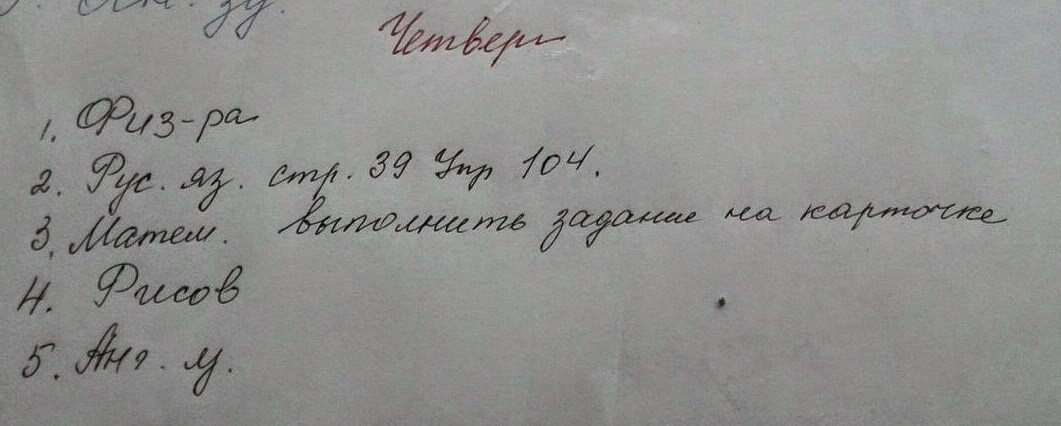 Четверг
1. Физ-ра
2. Рус. яз. стр. 39 Упр 104.
3. Матем. выполнить задание на карточке
4. Рисов
5. Анг.